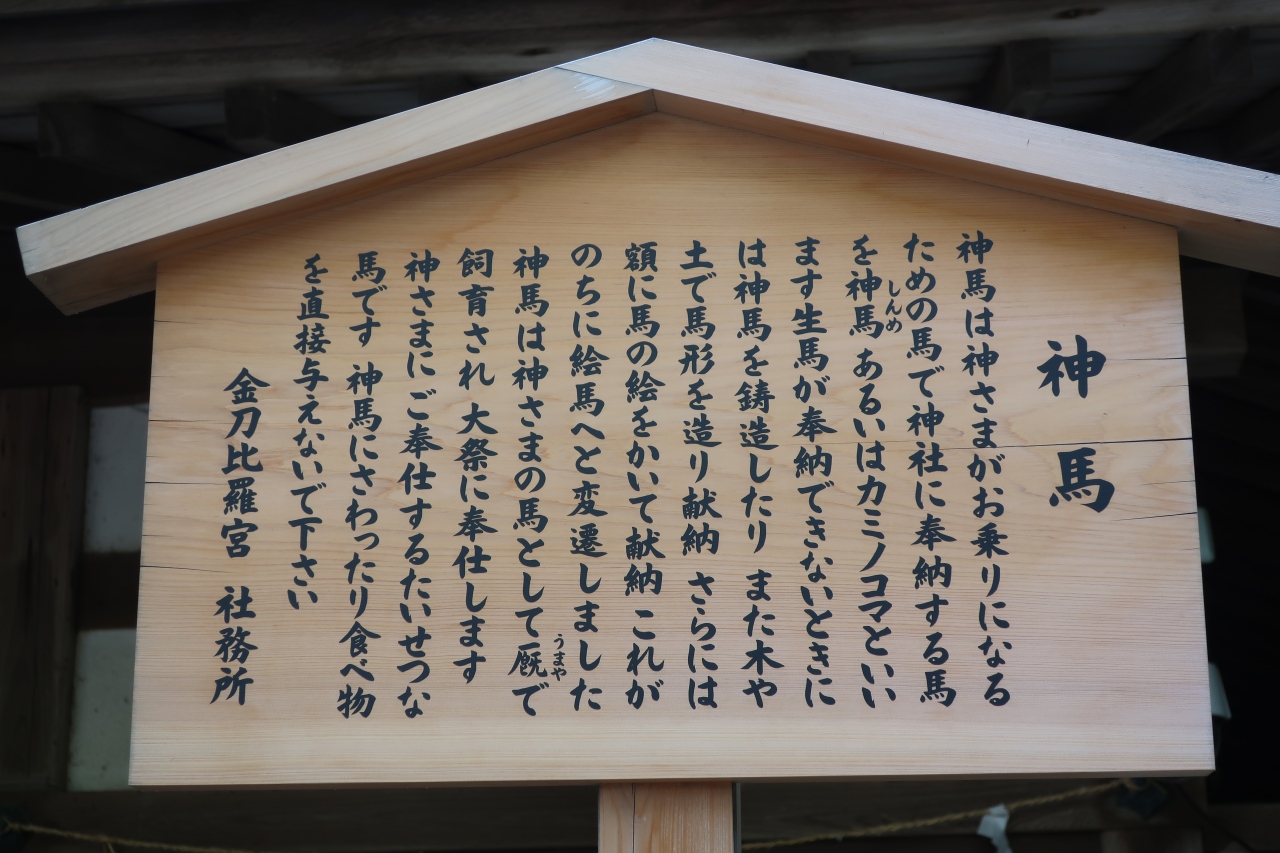 神馬
神馬は神さまがお乗りになる
ための馬で神社に奉納する馬
を神馬 あるいはカミノコマといい
しんめ
ます生馬が奉納できないときに
は神馬を鋳造したり また木や
土で馬形を造り献納 さらには
額に馬の絵をかいて献納 これが
のちに絵馬へと変遷しました
神馬は神さまの馬として厩で
うまや
飼育され 大祭に奉仕します
神さまにご奉仕するたいせつな
馬です 神馬にさわったり食べ物
を直接与えないで下さい
金刀比羅宮 社務所